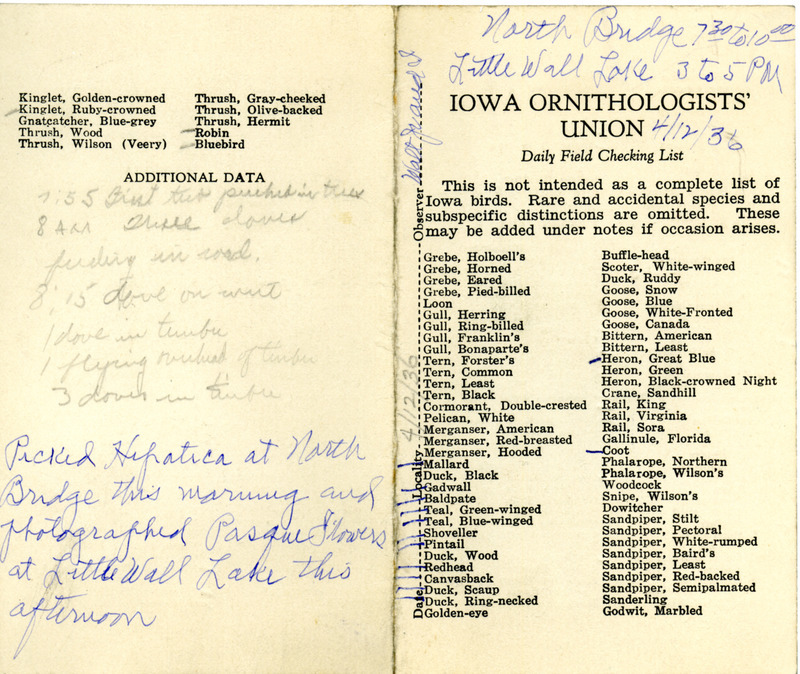 Kinglet, Golden-crowned
Kinglet, Ruby-crowned
Gnatcatcher, Blue-grey
Thrush, Wood
Thrush, Wilson (Veery)
Thrush, Gray-cheeked
Thrush, Olive-backed
Thrush, Hermit
Robin
Bluebird
ADDITIONAL DATA
7:55 First
8 AM three doves
feeding in road.
8:15 dove on
1 dove in timber
1 flying overhead of timber
3 doves in timber
Picked Hepatica at North
Bridge this morning and
photographed Pasque Flowers
at Little Wall Lake this
afternoon
North Bridge 7 30 to 10 00
Little Wall Lake 3 to 5 PM
IOWA ORNITHOLOGISTS'
UNION 4/12/36
Daily Field Checking List
This is not intended as a complete list of
Iowa birds. Rare and accidental species and
subspecific distinctions are omitted. These
may be added under notes if occasion arises.
Grebe, Holboell's
Grebe, Horned
Grebe, Eared
Grebe, Pied-billed
Loon
Gull, Herring
Gull, Ring-billed
Gull, Franklin's
Gull, Bonaparte's
Tern, Forster's
Tern, Common
Tern, Least
Tern, Black
Cormorant, Double-crested
Pelican, White
Merganser, American
Merganser, Red-breasted
Merganser, Hooded
Mallard
Duck, Black
Gadwall
Baldpate
Teal, Green-winged
Teal, Blue-winged
Shoveller
Pintail
Duck, Wood
Redhead
Canvasback
Duck, Scaup
Duck, Ring-necked
Golden-eye
Buffle-head
Scoter, White-winged
Duck, Ruddy
Goose, Snow
Goose, Blue
Goose, White-Fronted
Goose, Canada
Bittern, American
Bittern, Least
Heron, Great Blue
Heron, Green
Heron, Black-crowned Night
Crane, Sandhill
Rail, King
Rail, Virginia
Rail, Sora
Gallinule, Florida
Coot
Phalarope, Northern
Phalarope, Wilson's
Woodcock
Snipe, Wilson's
Dowitcher
Sandpiper, Stilt
Sandpiper, Pectoral
Sandpiper, White-rumped
Sandpiper, Baird's
Sandpiper, Least
Sandpiper, Red-backed
Sandpiper, Semipalmated
Sanderling
Godwit, Marbled
Date
Locality
4/12/36
Observer